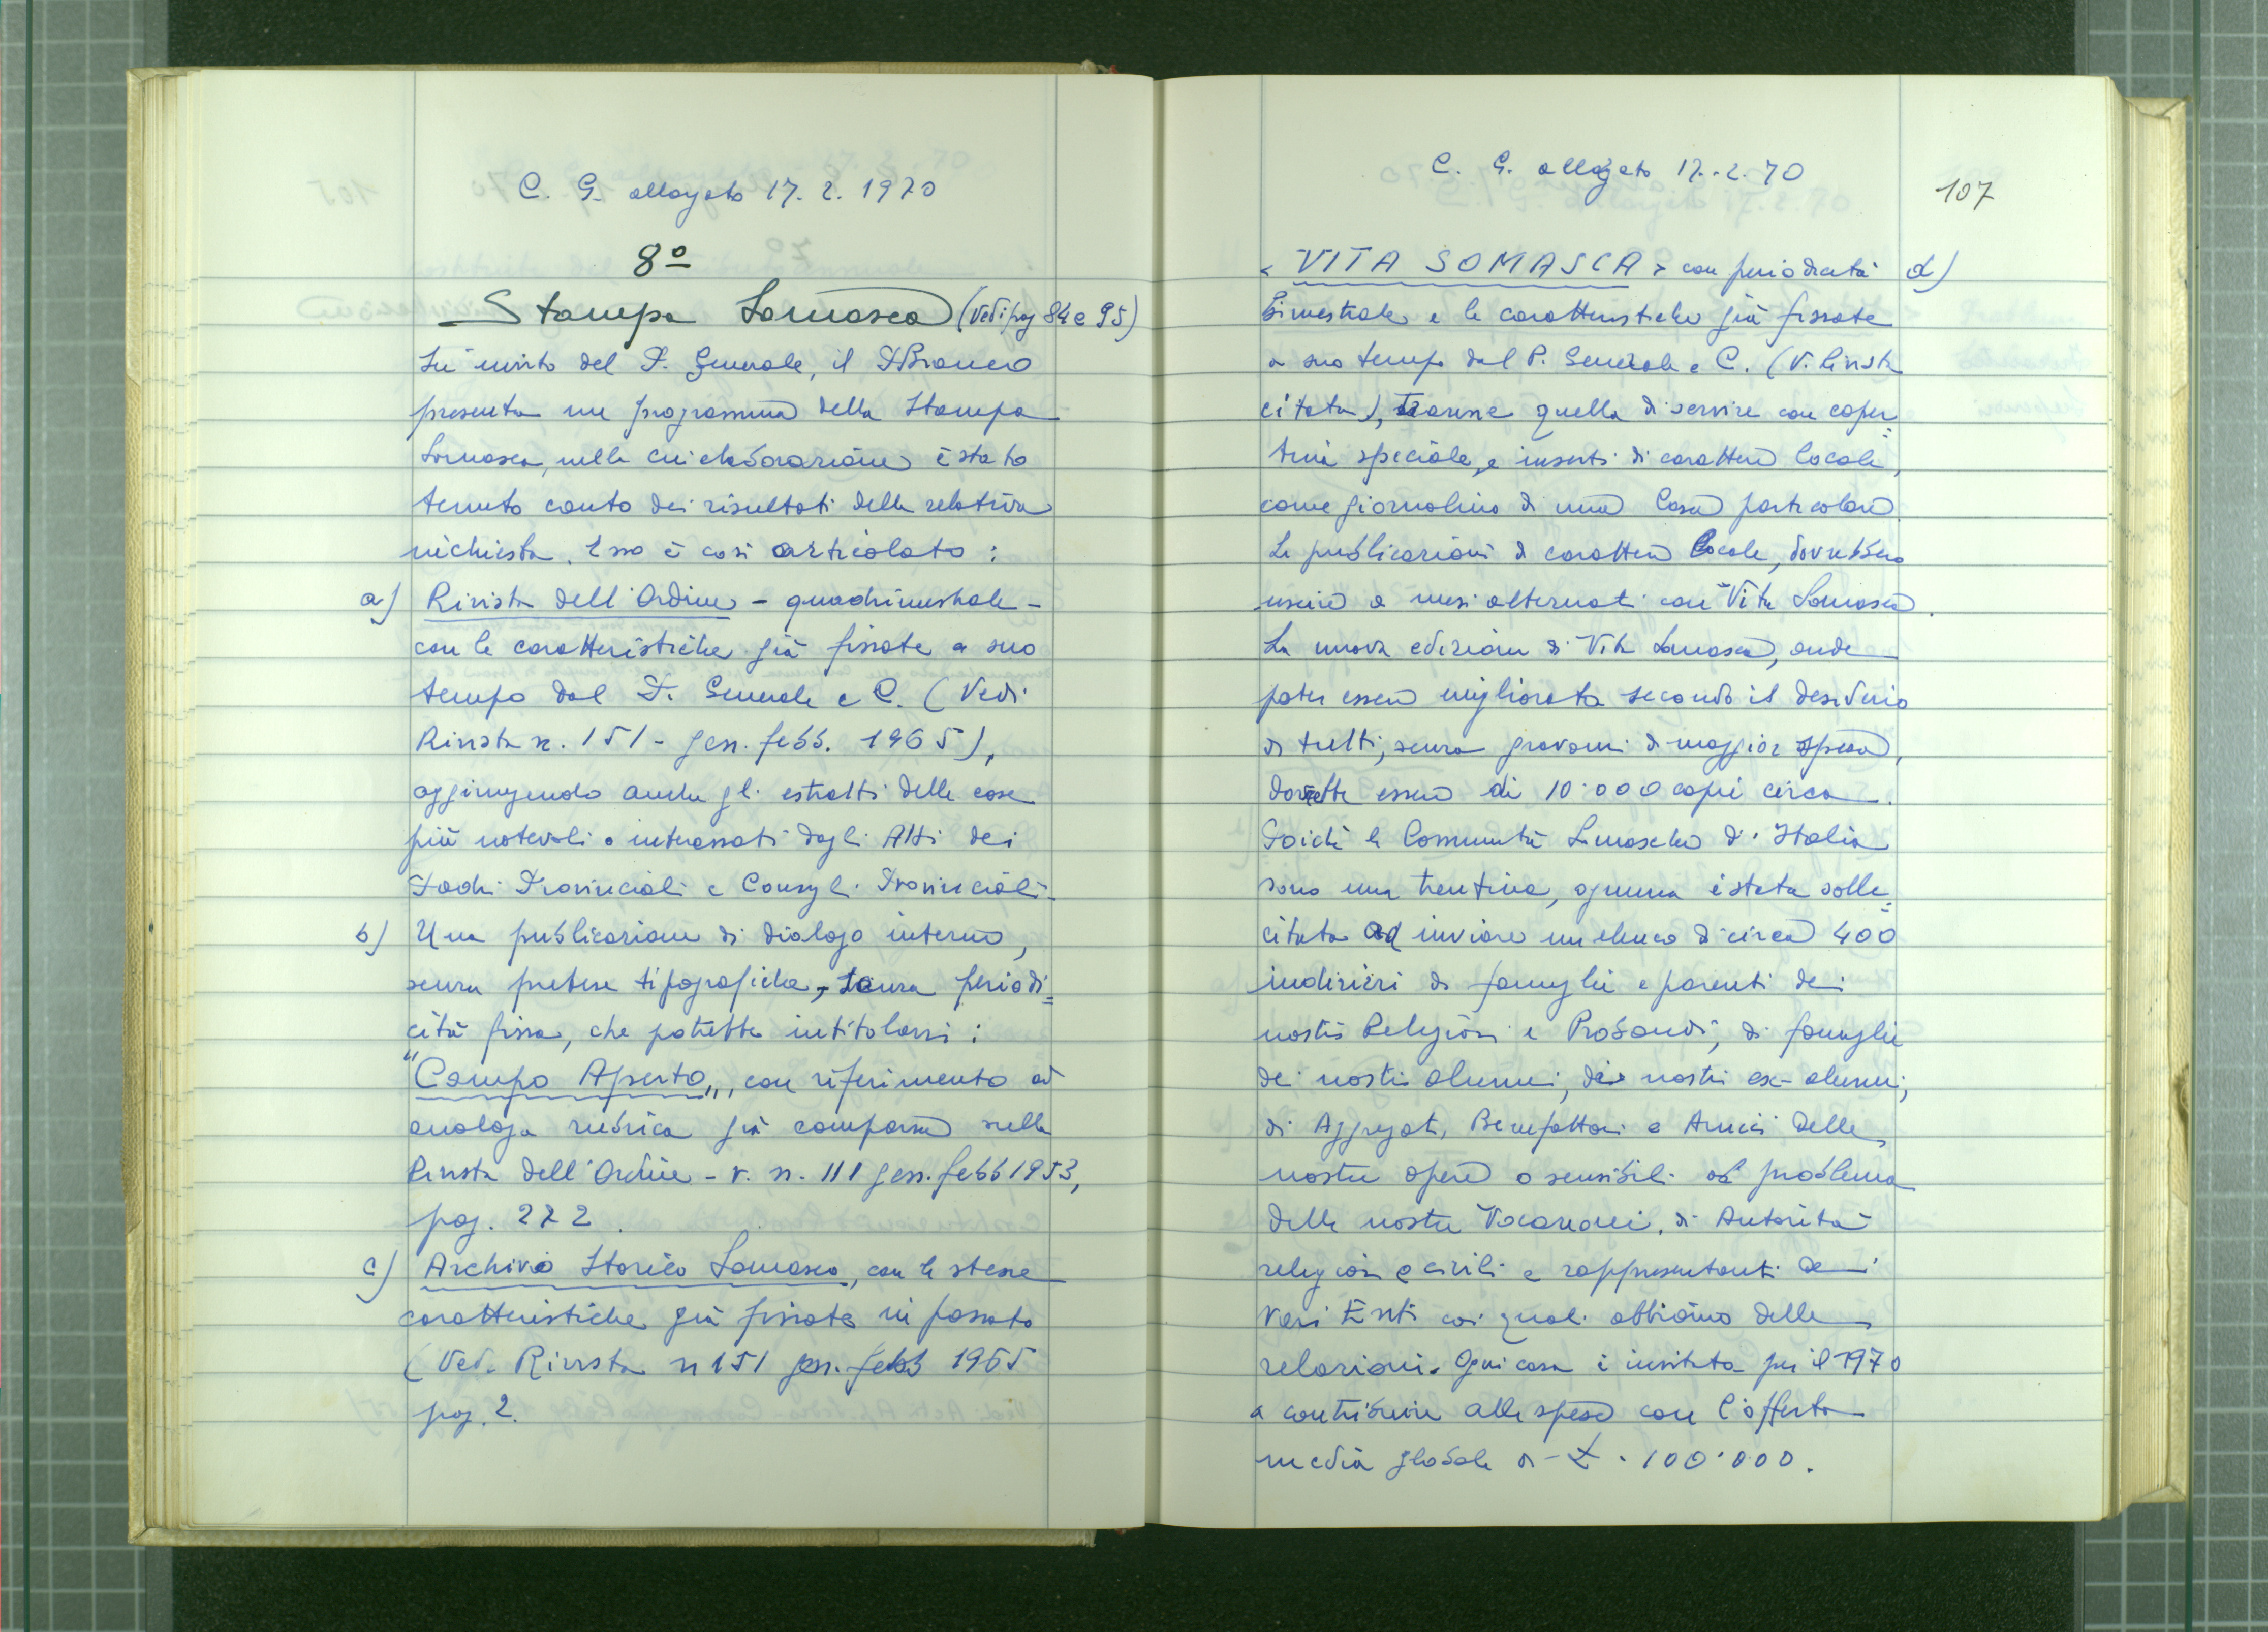 C. G. allegato 17. 2. 1970
8º
Stampa Somasca (Vedi pag 84 e 95)
Su invito del P. Generale, il P. Brameo
presenta un programma della Stampa
Somasca, nella cui elaborazione è stato
tenuto conto dei risultati della relativa
inchiesta. Esso è così articolato:
a) Rivista dell'Ordine - quadrimestrale -
con le caratteristiche già fissate a suo
tempo dal P. Generale e C. (Vedi
Rivista n. 151 - gen. febb. 1965),
aggiungendo anche gli estratti delle cose
più notevoli o interessati dagli Atti dei
Padri Provinciali e Consigli Provinciali.
b) Una pubblicazione di dialogo interno,
senza pretese tipografiche, senza periodi=
cità fissa, che potrebbe intitolarsi:
"Campo Aperto", con riferimento ad
analoga rubrica già comparsa sulla
Rivista dell'Ordine - v. n. 111 gen. febb 1953,
pag. 272.
c) Archivio Storico Somasco, con le stesse
caratteristiche già fissate in passato
(Ved. Rivista n 151 gen. febb 1965
pag. 2.
C. G. allegato 17. 2. 70
107
« VITA SOMASCA » con periodicità d)
bimestrale e le caratteristiche già fissate
a suo tempo dal P. Generale e C. (V. Rivista
citata), tranne quella di servire con coper=
tina speciale, e inserti di carattere locale,
come giornalino di una Casa particolare.
Le pubblicazioni di carattere locale, dovrebbero
uscire a mesi alternati con Vita Somasca.
La nuova edizione di Vita Somasca, onde
poter essere migliorata secondo il desiderio
di tutti, senza gravami di maggior spesa,
dovrebbe essere di 10.000 copie circa.
Poiché le Comunità Somasche d'Italia
sono una trentina, ognuna è stata solle=
citata ad inviare un elenco di circa 400
indirizzi di famiglie e parenti dei
nostri Religiosi e Probandi, di famiglie
dei nostri alunni, dei nostri ex-alunni,
di Aggregati, Benefattori e Amici delle
nostre opere o sensibili al problema
delle nostre Vocazioni, di Autorità
religiose e civili e rappresentanti dei
vari Enti coi quali abbiamo delle
relazioni. Ogni casa è invitata per il 1970
a contribuire alle spese con l'offerta
media globale di £. 100.000.